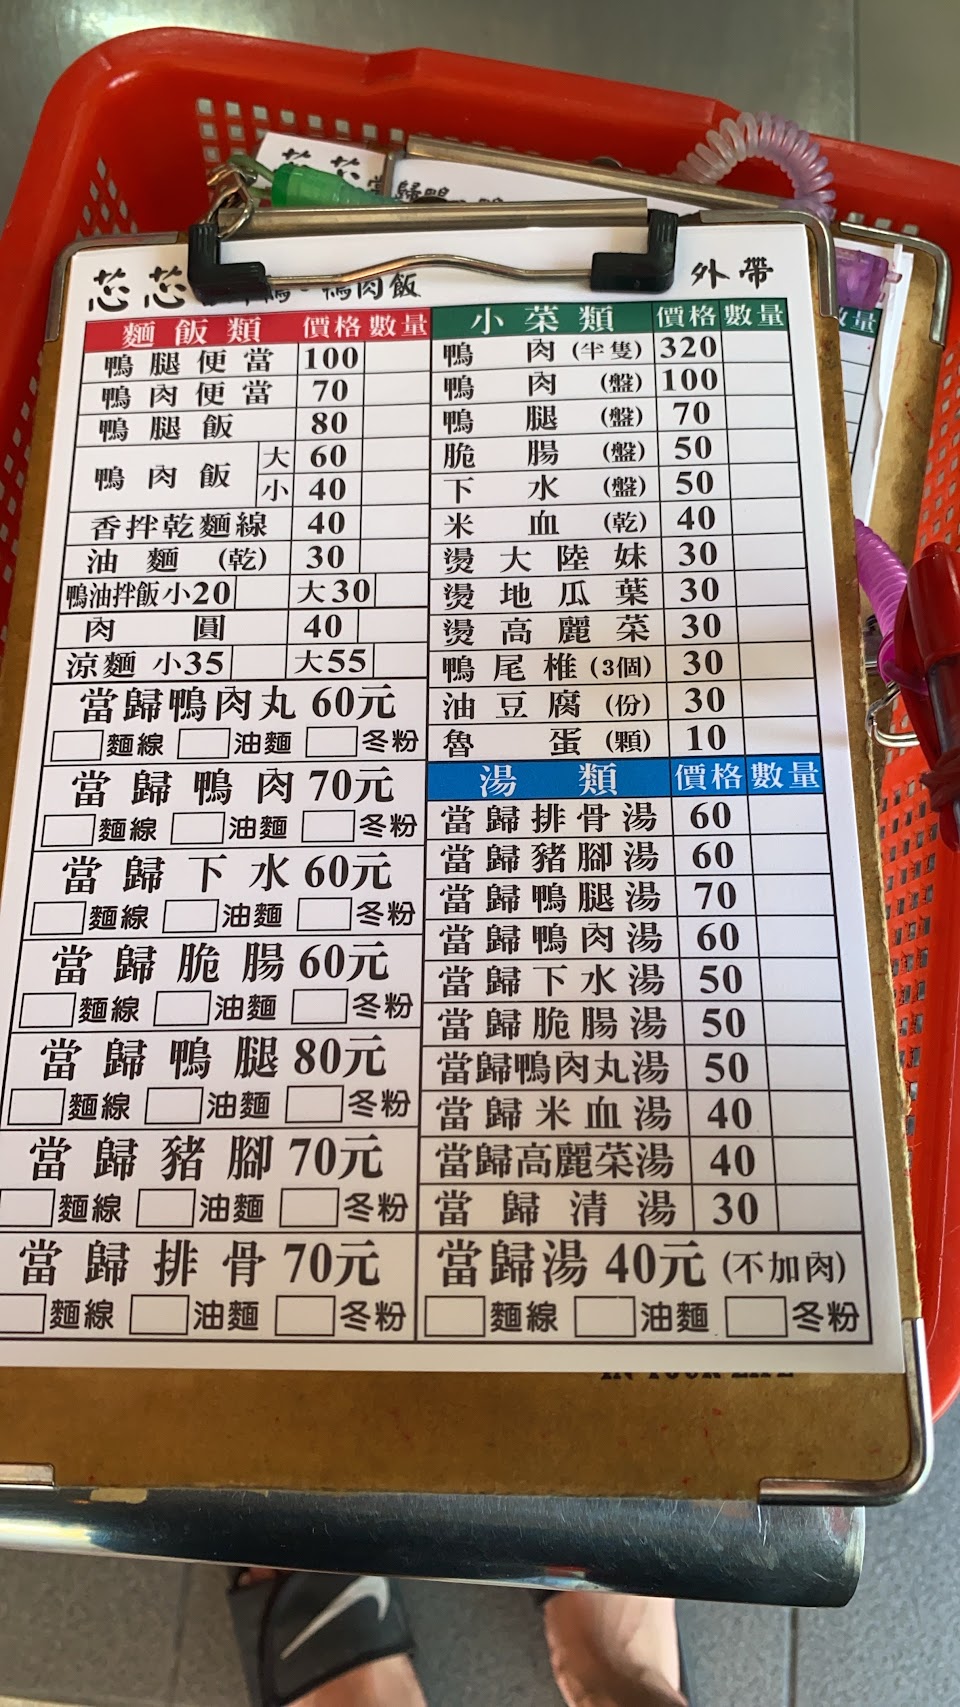 芯芯當歸鴨
芯芯 鴨肉飯
外帶
麵飯類 價格 數量
鴨腿便當 100
鴨肉便當 70
鴨腿飯 80
鴨肉飯 大 60
小 40
香拌乾麵線 40
油麵(乾) 30
鴨油拌飯 小20 大30
肉圓 40
涼麵 小35 大55
當歸鴨肉丸 60元
麵線 油麵 冬粉
當歸鴨肉 70元
麵線 油麵 冬粉
當歸下水 60元
麵線 油麵 冬粉
當歸脆腸 60元
麵線 油麵 冬粉
當歸鴨腿 80元
麵線 油麵 冬粉
當歸豬腳 70元
麵線 油麵 冬粉
當歸排骨 70元
麵線 油麵 冬粉
小菜類 價格 數量
鴨肉(半隻) 320
鴨肉(盤) 100
鴨腿(盤) 70
脆腸(盤) 50
下水(盤) 50
米血(乾) 40
燙大陸妹 30
燙地瓜葉 30
燙高麗菜 30
鴨尾椎(3個) 30
油豆腐(份) 30
魯蛋(顆) 10
湯類 價格 數量
當歸排骨湯 60
當歸豬腳湯 60
當歸鴨腿湯 70
當歸鴨肉湯 60
當歸下水湯 50
當歸脆腸湯 50
當歸鴨肉丸湯 50
當歸米血湯 40
當歸高麗菜湯 40
當歸清湯 30
當歸湯 40元(不加肉)
麵線 油麵 冬粉
數量